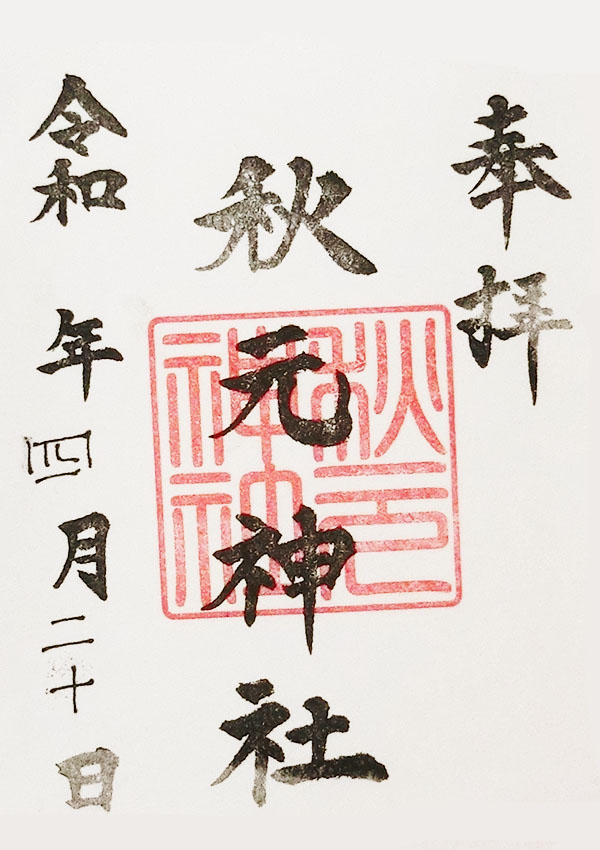 奉拝
秋元神社
秋元
神社
令和 年四月二十日